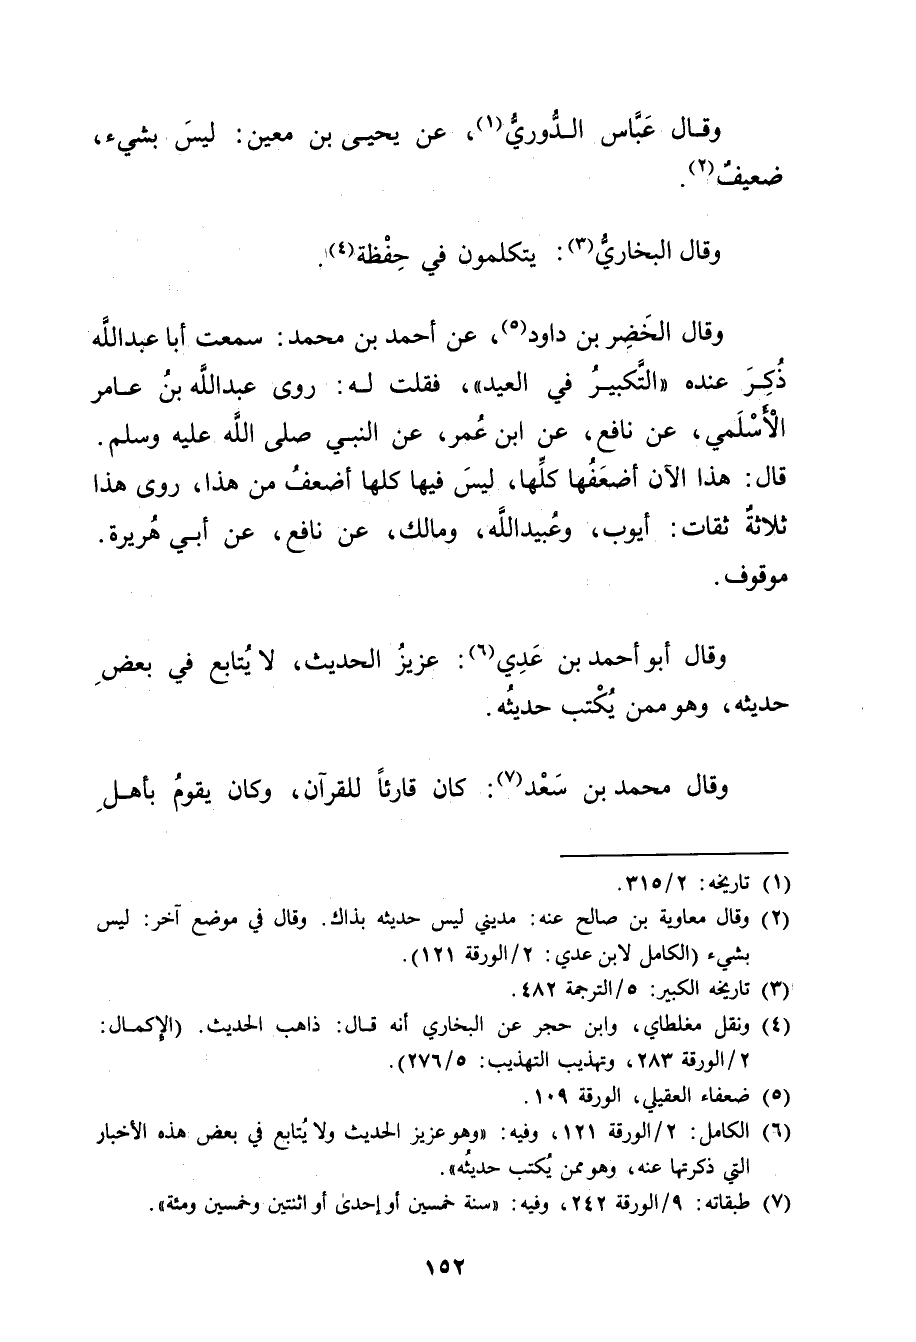 وقـال عَبَّاس الـدُّوريُّ(١)، عن يحيـى بن معين: ليسَ بشيء،
ضعيفٌ(٢).
وقال البخاريُّ(٣): يتكلمون في حِفْظة(٤).
وقال الخَضِر بن داود(٥)، عن أحمد بن محمد: سمعت أبا عبدالله
ذُكِرَ عنده «التَّكبيـرُ في العيد»، فقلت لـه: روى عبدالله بنُ عـامر
الأَسْلَمي، عن نافع، عن ابن عُمر، عن النبـي صلى الله عليه وسلم.
قال: هذا الآن أضعَفُها كلِّها، ليسَ فيها كلها أضعفُ من هذا، روى هذا
ثلاثةٌ ثقات: أيوب، وعُبيدالله، ومالك، عن نافع، عن أبـي هُريرة.
موقوف.
وقال أبو أحمد بن عَدِي(٦): عزيزُ الحديث، لا يُتابع في بعضِ
حديثه، وهو ممن يُكْتب حديثُه.
وقال محمد بن سَعْد(٧): كان قارئاً للقرآن، وكان يقومُ بأهـلِ
(١) تاريخه: ٢/٣١٥.
(٢) وقال معاوية بن صالح عنه: مديني ليس حديثه بذاك. وقال في موضع آخر: ليس
بشيء (الكامل لابن عدي: ٢/الورقة ١٢١).
(٣) تاريخه الكبير: ٥/الترجمة ٤٨٢.
(٤) ونقل مغلطاي، وابن حجر عن البخاري أنه قـال: ذاهب الحديث. (الإكمـال:
٢/الورقة ٢٨٣، وتهذيب التهذيب: ٥/٢٧٦).
(٥) ضعفاء العقيلي، الورقة ١٠٩.
(٦) الكامل: ٢/الورقة ١٢١، وفيه: «وهو عزيز الحديث ولا يُتابع في بعض هذه الأخبار
التي ذكرتها عنه، وهو ممن يُكتب حديثُه».
(٧) طبقاته: ٩/الورقة ٢٤٢، وفيه: «سنة خمسين أو إحدى أو اثنتين وخمسين ومئة».
١٥٢